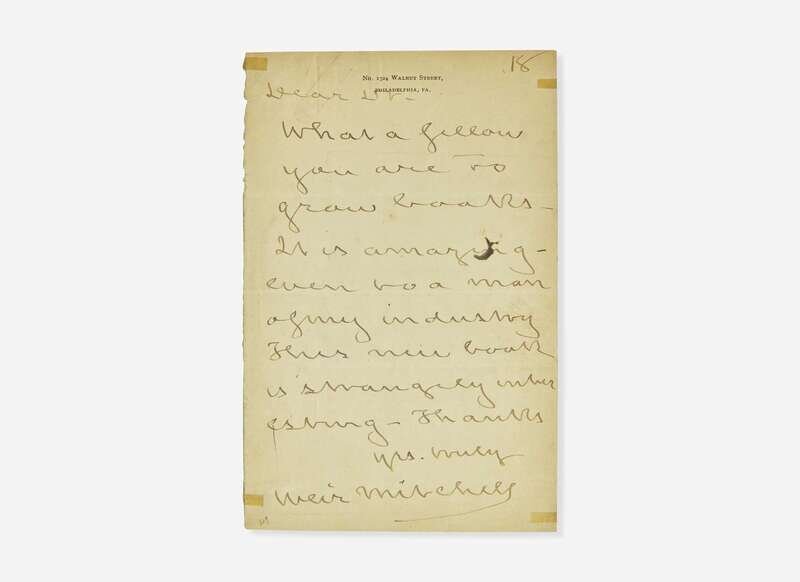 18
No. 1524 Walnut Street,
Philadelphia, Pa.
Dear Dr -
What a fellow
you are to
grow books -
It is amazing -
even to a man
of my industry
This new book
is strangely inter
esting - Thanks
yrs. truly
Weir Mitchell